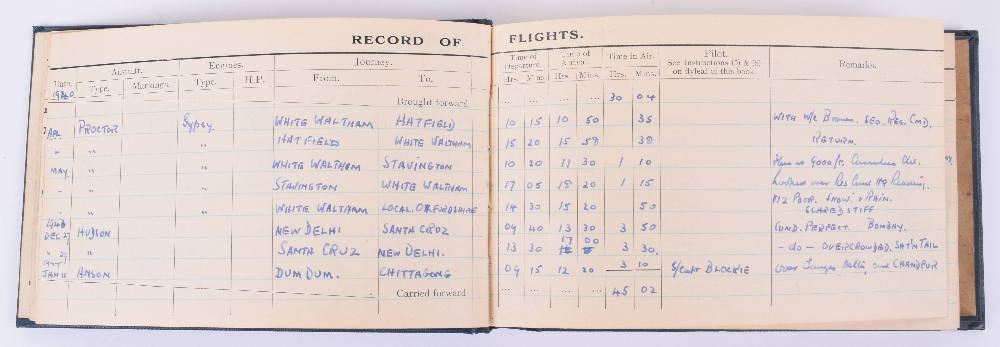 RECORD OF FLIGHTS.
Date. Aircraft. Engines. Journey. Time of Departure. Time of Arrival. Time in Air. Pilot. See Instructions (5) & (6) on flyleaf of this book. Remarks.
Type. Markings. Type. H.P. From. To. Hrs. Mins. Hrs. Mins. Hrs. Mins.
1940
Brought forward ... ... ... ... 30 04
APL PROCTOR Gypsy WHITE WALTHAM HATFIELD 10 15 10 50 35 WITH Brown. RES. CMD.
" " " HATFIELD WHITE WALTHAM 15 20 15 58 38 RETURN.
MAY. " WHITE WALTHAM STAVINGTON 10 20 11 30 1 10 9000 ft.
" " STAVINGTON WHITE WALTHAM 17 05 18 20 1 15 Looked over Res Cmd HQ Reading.
" " " WHITE WALTHAM LOCAL. OXFORDSHIRE 14 30 15 20 50 VIZ POOR. SNOW & RAIN. SCARED STIFF
1943
DEC 27 HUDSON NEW DELHI SANTA CRUZ 09 40 13 30 3 50 COND. PERFECT. BOMBAY.
" 29 SANTA CRUZ NEW DELHI. 13 30 17 00 3 30. - do - OVERCROWDED. SAT IN TAIL
1944
JAN 11 ANSON DUM DUM. CHITTAGONG 09 15 12 20 3 10 BLOCKIE over Ganges Delta, and CHANDPUR
Carried forward ... ... ... ... 45 02